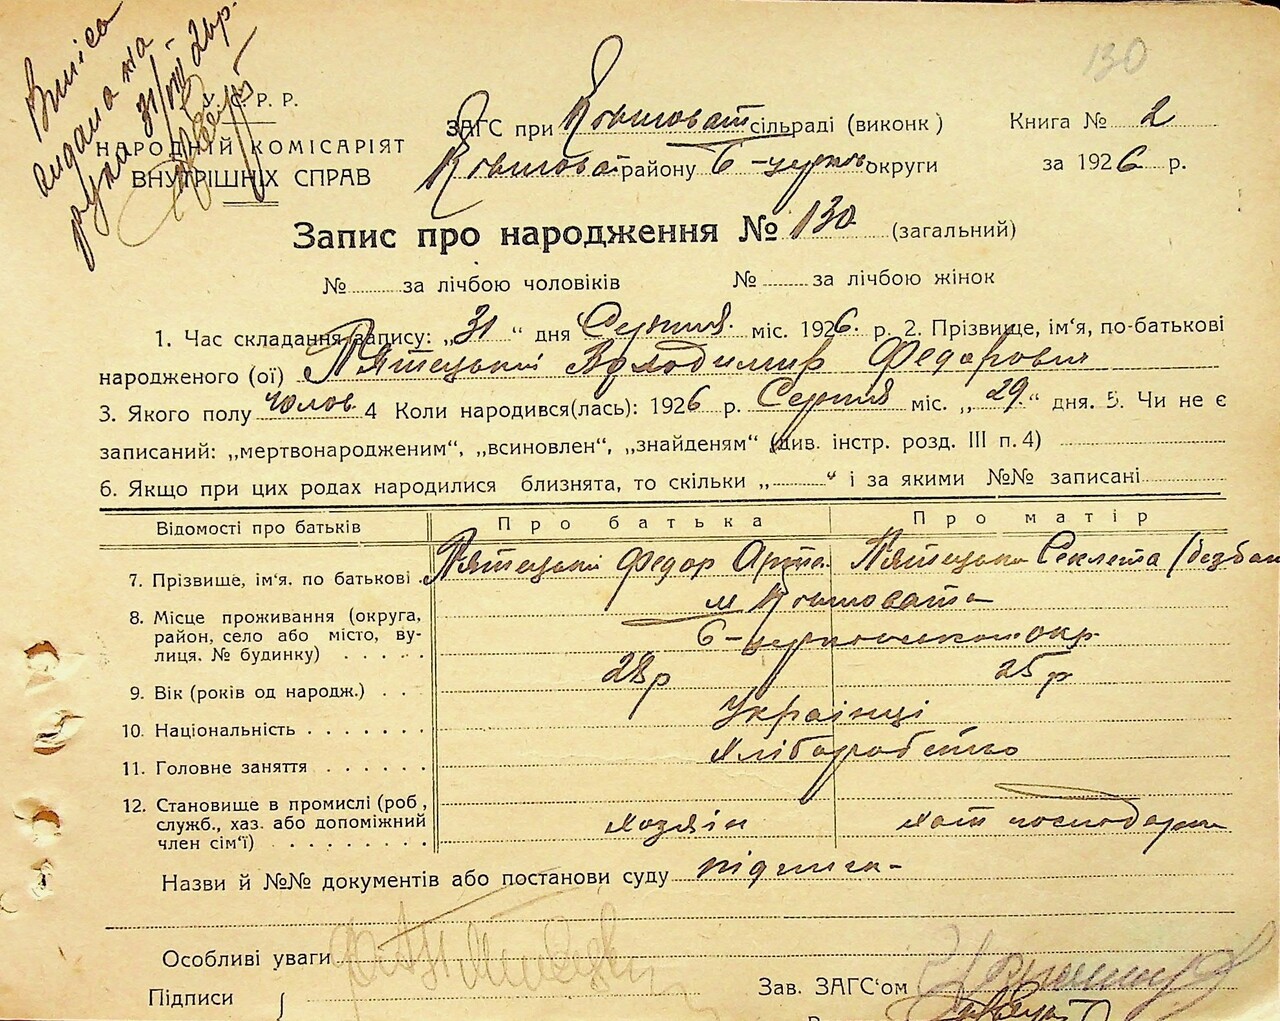 130
Виписа
видана на
руки 31/VIII 26р.
У. С. Р. Р.
НАРОДНІЙ КОМІСАРІЯТ
ВНУТРІШНІХ СПРАВ
ЗАГС при Ковшоват сільраді (виконк) Книга № 2
Ковшоват району Б-церков округи за 1926 р.
Запис про народження № 130 (загальний)
№ за лічбою чоловіків № за лічбою жінок
1. Час складання запису: „31“ дня Серпня міс. 1926 р. 2. Прізвище, ім‘я, по-батькові
народженого (ої) П‘ятецький Володимир Федорович
3. Якого полу чолов. 4 Коли народився(лась): 1926 р. Серпня міс. „29“ дня. 5. Чи не є
записаний: „мертвонародженим“, „всиновлен“, „знайденям“ (див. інстр. розд. III п. 4)
6. Якщо при цих родах народилися близнята, то скільки „ “ і за якими №№ записані
Відомості про батьків Про батька Про матір
7. Прізвище, ім‘я. по батькові П‘ятецький Федор Арте. П‘ятецька Секлета (безбан
8. Місце проживання (округа, район, село або місто, вулиця. № будинку) м Ковшовата
Б-церковськои окр.
9. Вік (років од народж.) 28 р 25 р
10. Національність Українці
11. Головне заняття Хліборобство
12. Становище в промислі (роб, служб., хаз. або допоміжний член сім‘ї) хозяін хат господарка
Назви й №№ документів або постанови суду підписка-
Особливі уваги
Підписи Зав. ЗАГС‘ом